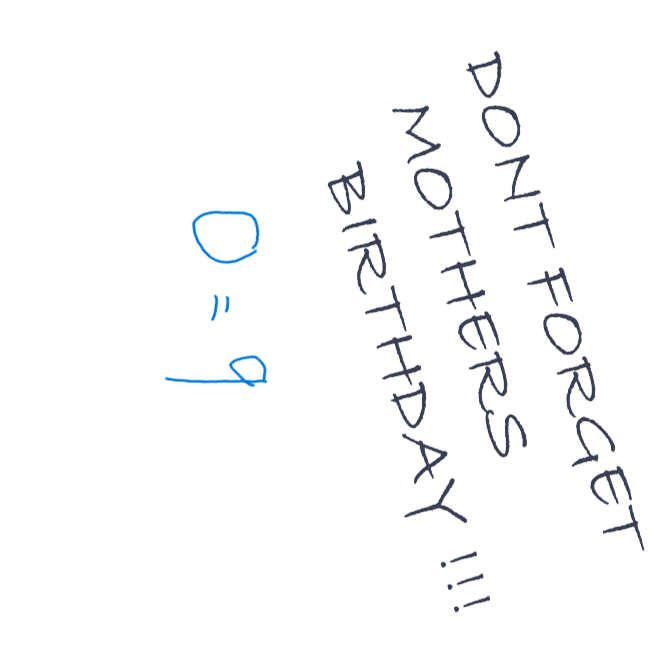 DONT FORGET
MOTHERS
BIRTHDAY !!!
0 = 9